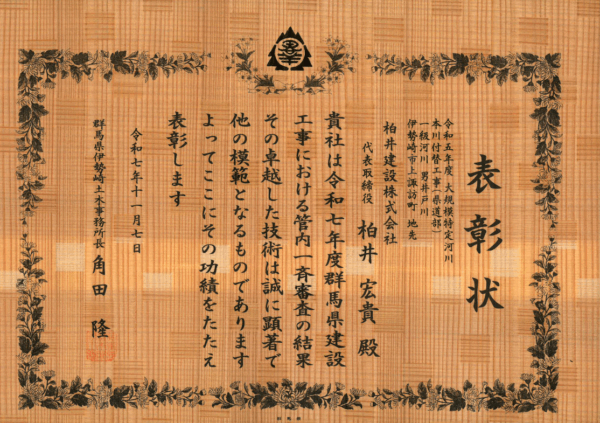 表彰状
令和五年度 大規模特定河川
本川付替工事(県道部)
一級河川 男井戸川
伊勢崎市上諏訪町 地先
柏井建設株式会社
代表取締役 柏井 宏貴 殿
貴社は令和七年度群馬県建設
工事における管内一斉審査の結果
その卓越した技術は誠に顕著で
他の模範となるものであります
よってここにその功績をたたえ
表彰します
令和七年十一月七日
群馬県伊勢崎土木事務所長 角田 隆